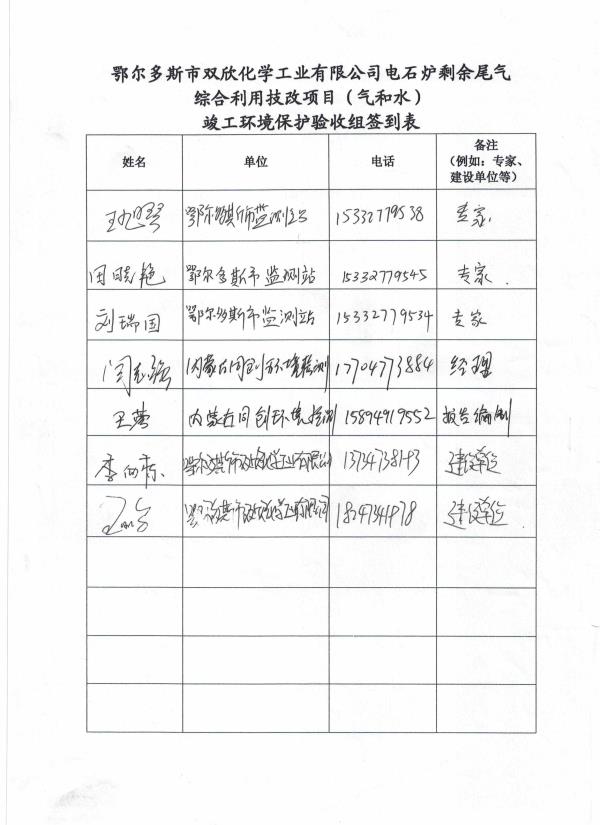 鄂尔多斯市双欣化学工业有限公司电石炉剩余尾气
综合利用技改项目（气和水）
竣工环境保护验收组签到表
姓名 单位 电话 备注
（例如：专家、
建设单位等）
鄂尔多斯市监测站 15332779538 专家
田晓艳 鄂尔多斯市监测站 15332779545 专家
刘瑞国 鄂尔多斯市监测站 15332779534 专家
闫志强 内蒙古同创环境检测 17704773884 经理
王蕾 内蒙古同创环境检测 15894919552 报告编制
鄂尔多斯市双欣化学工业有限公司 建设单位
鄂尔多斯市双欣化学工业有限公司 建设单位